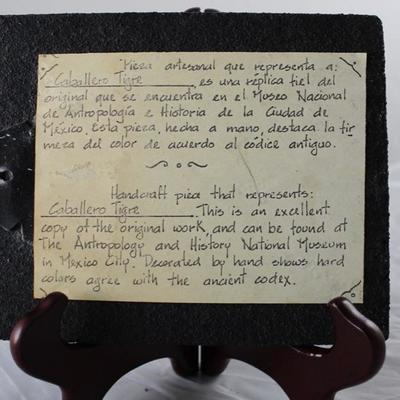 Pieza artesanal que representa a:
Caballero Tigre es una réplica fiel del
original que se encuentra en el Museo Nacional
de Antropología e Historia de la Ciudad de
México. Esta pieza, hecha a mano, destaca la fir
meza del color de acuerdo al códice antiguo.
Handcraft piece that represents:
Caballero Tigre. This is an excellent
copy of the original work, and can be found at
The Antropology and History National Museum
in Mexico City. Decorated by hand shows hard
colors agree with the ancient codex.